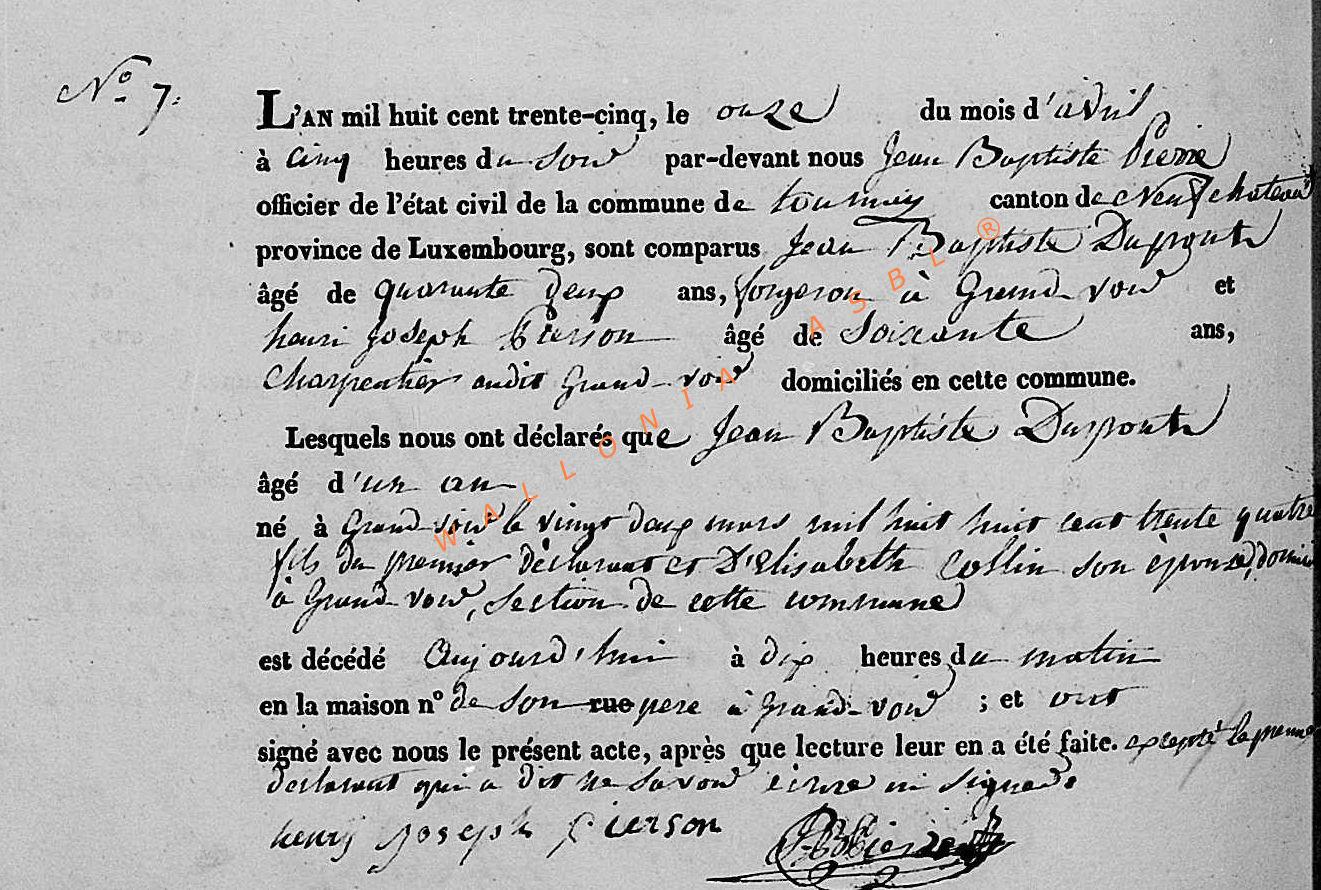 N° 7.
L'AN mil huit cent trente-cinq, le onze du mois d'avril
à cinq heures du soir par-devant nous Jean Baptiste Pierre
officier de l'état civil de la commune de tournay canton de Neufchateau
province de Luxembourg, sont comparus Jean Baptiste Dupont
âgé de quarante deux ans, forgeron à Grand-voir et
henri Joseph Pierson âgé de Soixante ans,
Charpentier audit Grand-voir domiciliés en cette commune.
Lesquels nous ont déclarés que Jean Baptiste Dupont
âgé d'un an
né à Grand voir le vingt deux mars mil huit huit cent trente quatre
fils du premier déclarant et D'Elisabeth Collin son épouse, domici
à Grand voir, section de cette commune
est décédé Aujourd'hui à dix heures du matin
en la maison n° de son rue pere à Grand-voir ; et ont
signé avec nous le présent acte, après que lecture leur en a été faite. excepté le premier
declarant qui a dit ne savoir écrire ni signer.
henry Joseph Pierson
WALLONIA ASBL ®